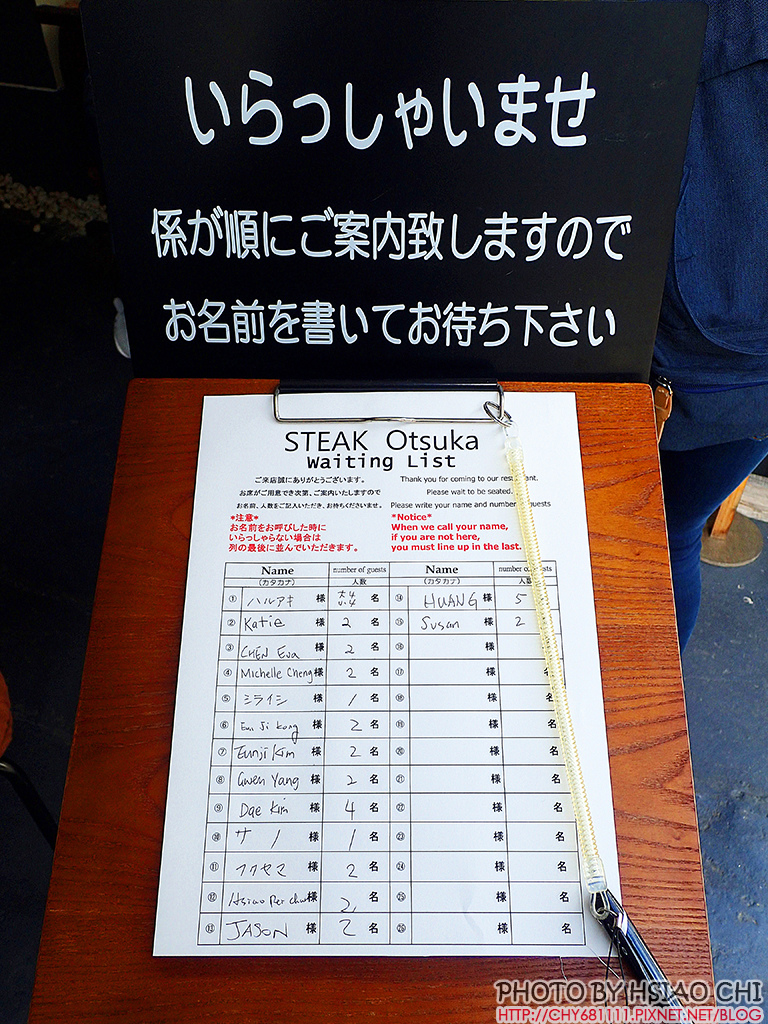 いらっしゃいませ
係が順にご案内致しますので
お名前を書いてお待ち下さい
STEAK Otsuka
Waiting List
ご来店誠にありがとうございます。 Thank you for coming to our restaurant.
お席がご用意でき次第、ご案内いたしますので Please wait to be seated.
お名前、人数をご記入いただき、お待ちくださいませ。 Please write your name and number guests
*注意* *Notice*
お名前をお呼びした時に When we call your name,
いらっしゃらない場合は if you are not here,
列の最後に並んでいただきます。 you must line up in the last.
Name number of guests Name number guests
(カタカナ) 人数 (カタカナ) 人数
① ハルアキ 様 大4 小4 名 ⑭ HUANG 様 5
② Katie 様 2 名 ⑮ Susan 様 2 名
③ CHEN Eva 様 2 名 ⑯ 様 名
④ Michelle Cheng 様 2 名 ⑰ 様 名
⑤ ミライシ 様 1 名 ⑱ 様 名
⑥ Eun Ji Kong 様 2 名 ⑲ 様 名
⑦ Eunji Kim 様 2 名 ⑳ 様 名
⑧ Gwen Yang 様 2 名 ㉑ 様 名
⑨ Dae Kim 様 4 名 ㉒ 様 名
⑩ 様 1 名 ㉓ 様 名
⑪ フクヤマ 様 2 名 ㉔ 様 名
⑫ Hsiao Pei 様 2 名 ㉕ 様 名
⑬ JASON 様 2 名 ㉖ 様 名
PHOTO BY HSIAO CHI
HTTP://CHY681111.PIXNET.NET/BLOG